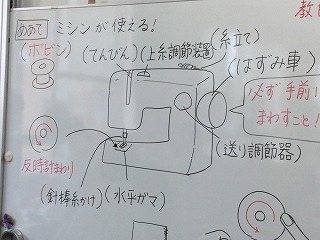 めあて ミシンが使える!
(ボビン)
(てんびん)
(上糸調節装置)
(糸立て)
(はずみ車)
必ず手前に
まわすこと!
反時計まわり
(送り調節器)
(針棒糸かけ)
(水平ガマ)